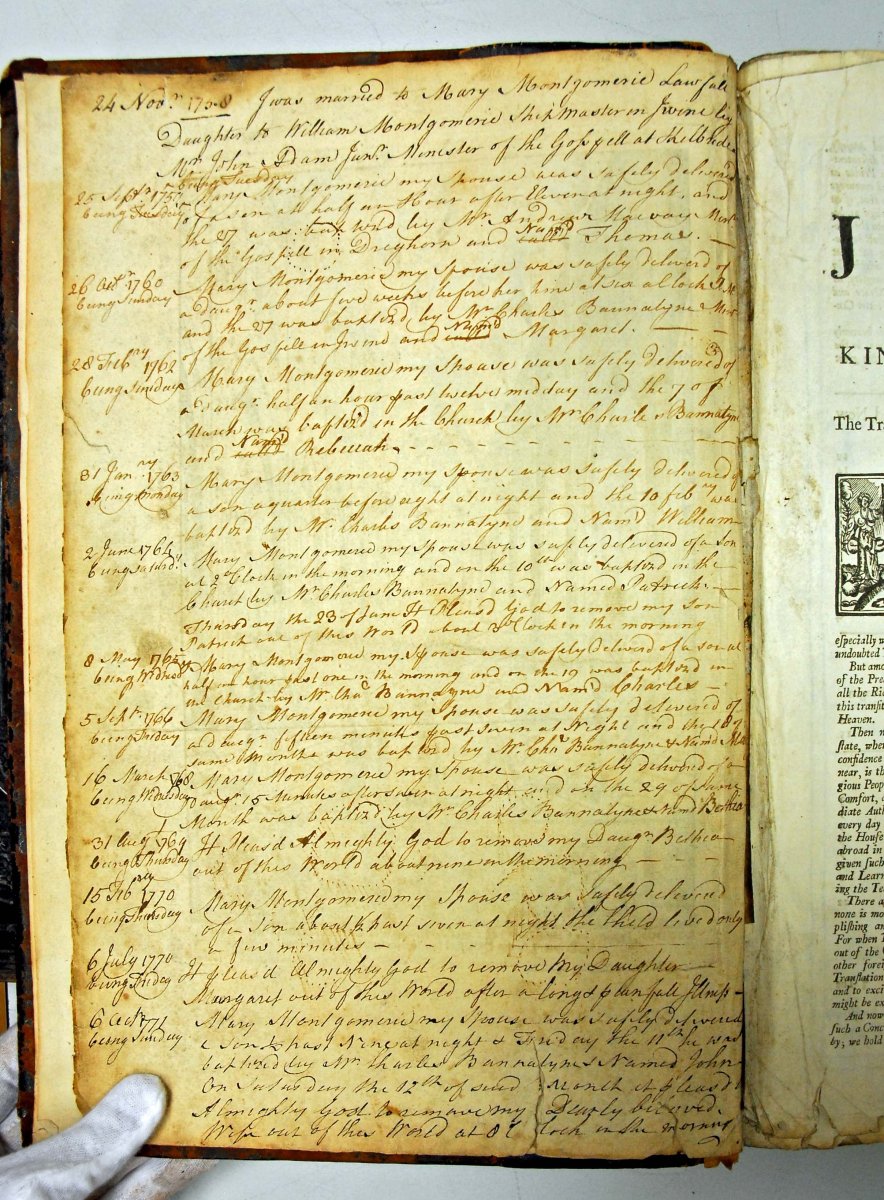 24 Novr. 1758 I was married to Mary Montgomerie Lawfull
Daughter to William Montgomerie Shipmaster in Irvine by
Mr. John Adam Junr. Minister of the Gospell at Kilbride
being Tuesday
25 Septr.
being Tuesday
Mary Montgomerie my Spouse was safely delivered
of a son at half an Hour after Eleven at night, and
the 27 was baptized by Mr. Andrew
of the Gospell in Dreghorn and Named Thomas. —
26 Octr. 1760
being Sunday
Mary Montgomerie my Spouse was safely deliverd of
a daugr. about five weeks before her time at six a clock
and the 27 was baptized by Mr. Charles Bannatyne Minr.
of the Gospell in and Namd Margaret. — —
28 Febry 1762
being Sunday
Mary Montgomerie my Spouse was safely delivered of
a daugr. half an hour past twelve midday and the 7 of
March was baptized in the Church by Mr. Charles Bannatyne
and Namd Rebeccah. - - - - - - - -
31 Janry 1763
being Monday
Mary Montgomerie my Spouse was safely delivered of
a son a quarter before eight at night and the 10 Febry was
baptized by Mr. Charles Bannatyne and Namd William
2 June 1764
being Saturdy
Mary Montgomerie my Spouse was safely delivered of a son
at 2 Clock in the morning and on the 10th was baptized in the
Church by Mr. Charles Bannatyne and Named Patrick.
Thursday the 23 of June It Pleasd God to remove my son
Patrick out of this World about 3 oClock in the morning
8 May 1765
being
Mary Montgomerie my Spouse was safely deliverd of a son at
half an hour past one in the morning and on the 19 was baptized in
the Church by Mr. Chas. Bannatyne and Namd Charles —
5 Septr. 1766
being Friday
Mary Montgomerie my Spouse was safely delivered of
a daugr. fifteen minutes past seven at Night and the of
same Month was baptized by Mr. Chs. Bannatyne & Namd
16 March 1768
being Wednesday
Mary Montgomerie my Spouse was safely deliverd of a
daugr. 15 Minutes after seven at night and on the 29 of same
Month was baptized by Mr. Charles Bannatyne & Namd Bethia
31 Augt. 1769
being Thursday
It Pleasd Almighty God to remove my Daugr. Bethia
out of this World about nine in the morning — — —
15 Febry 1770
being Thursday
Mary Montgomerie my Spouse was safely delivered
of a son about ½ past seven at night the Child lived only
a few minutes — — — —
6 July 1770
being Friday
It pleasd Almighty God to remove My Daughter
Margaret out of this World after a long & painfull Illness —
6 Octr. 1771
being Sunday
Mary Montgomerie my Spouse was safely delivered
a Son ½ past Nine at night & Friday the 11th he was
baptized by Mr. Charles Bannatyne & Named John
On Saturday the 12th of said Month it pleasd
Almighty God to remove my Dearly beloved
Wife out of this World at 8 Clock in the morning
J
KIN
The Tra
especially w
undoubted T
But amo
of the Prea
all the Ric
this transit
Heaven.
Then n
state, when
confidence
near, is th
gious Peop
Comfort, a
diate Auth
every day
the House
abroad in
given such
and Learn
ing the Te
There a
none is mo
plishing an
For when
out of the
other forei
Translation
and to exci
might be ex
And now
such a Conc
by; we hold